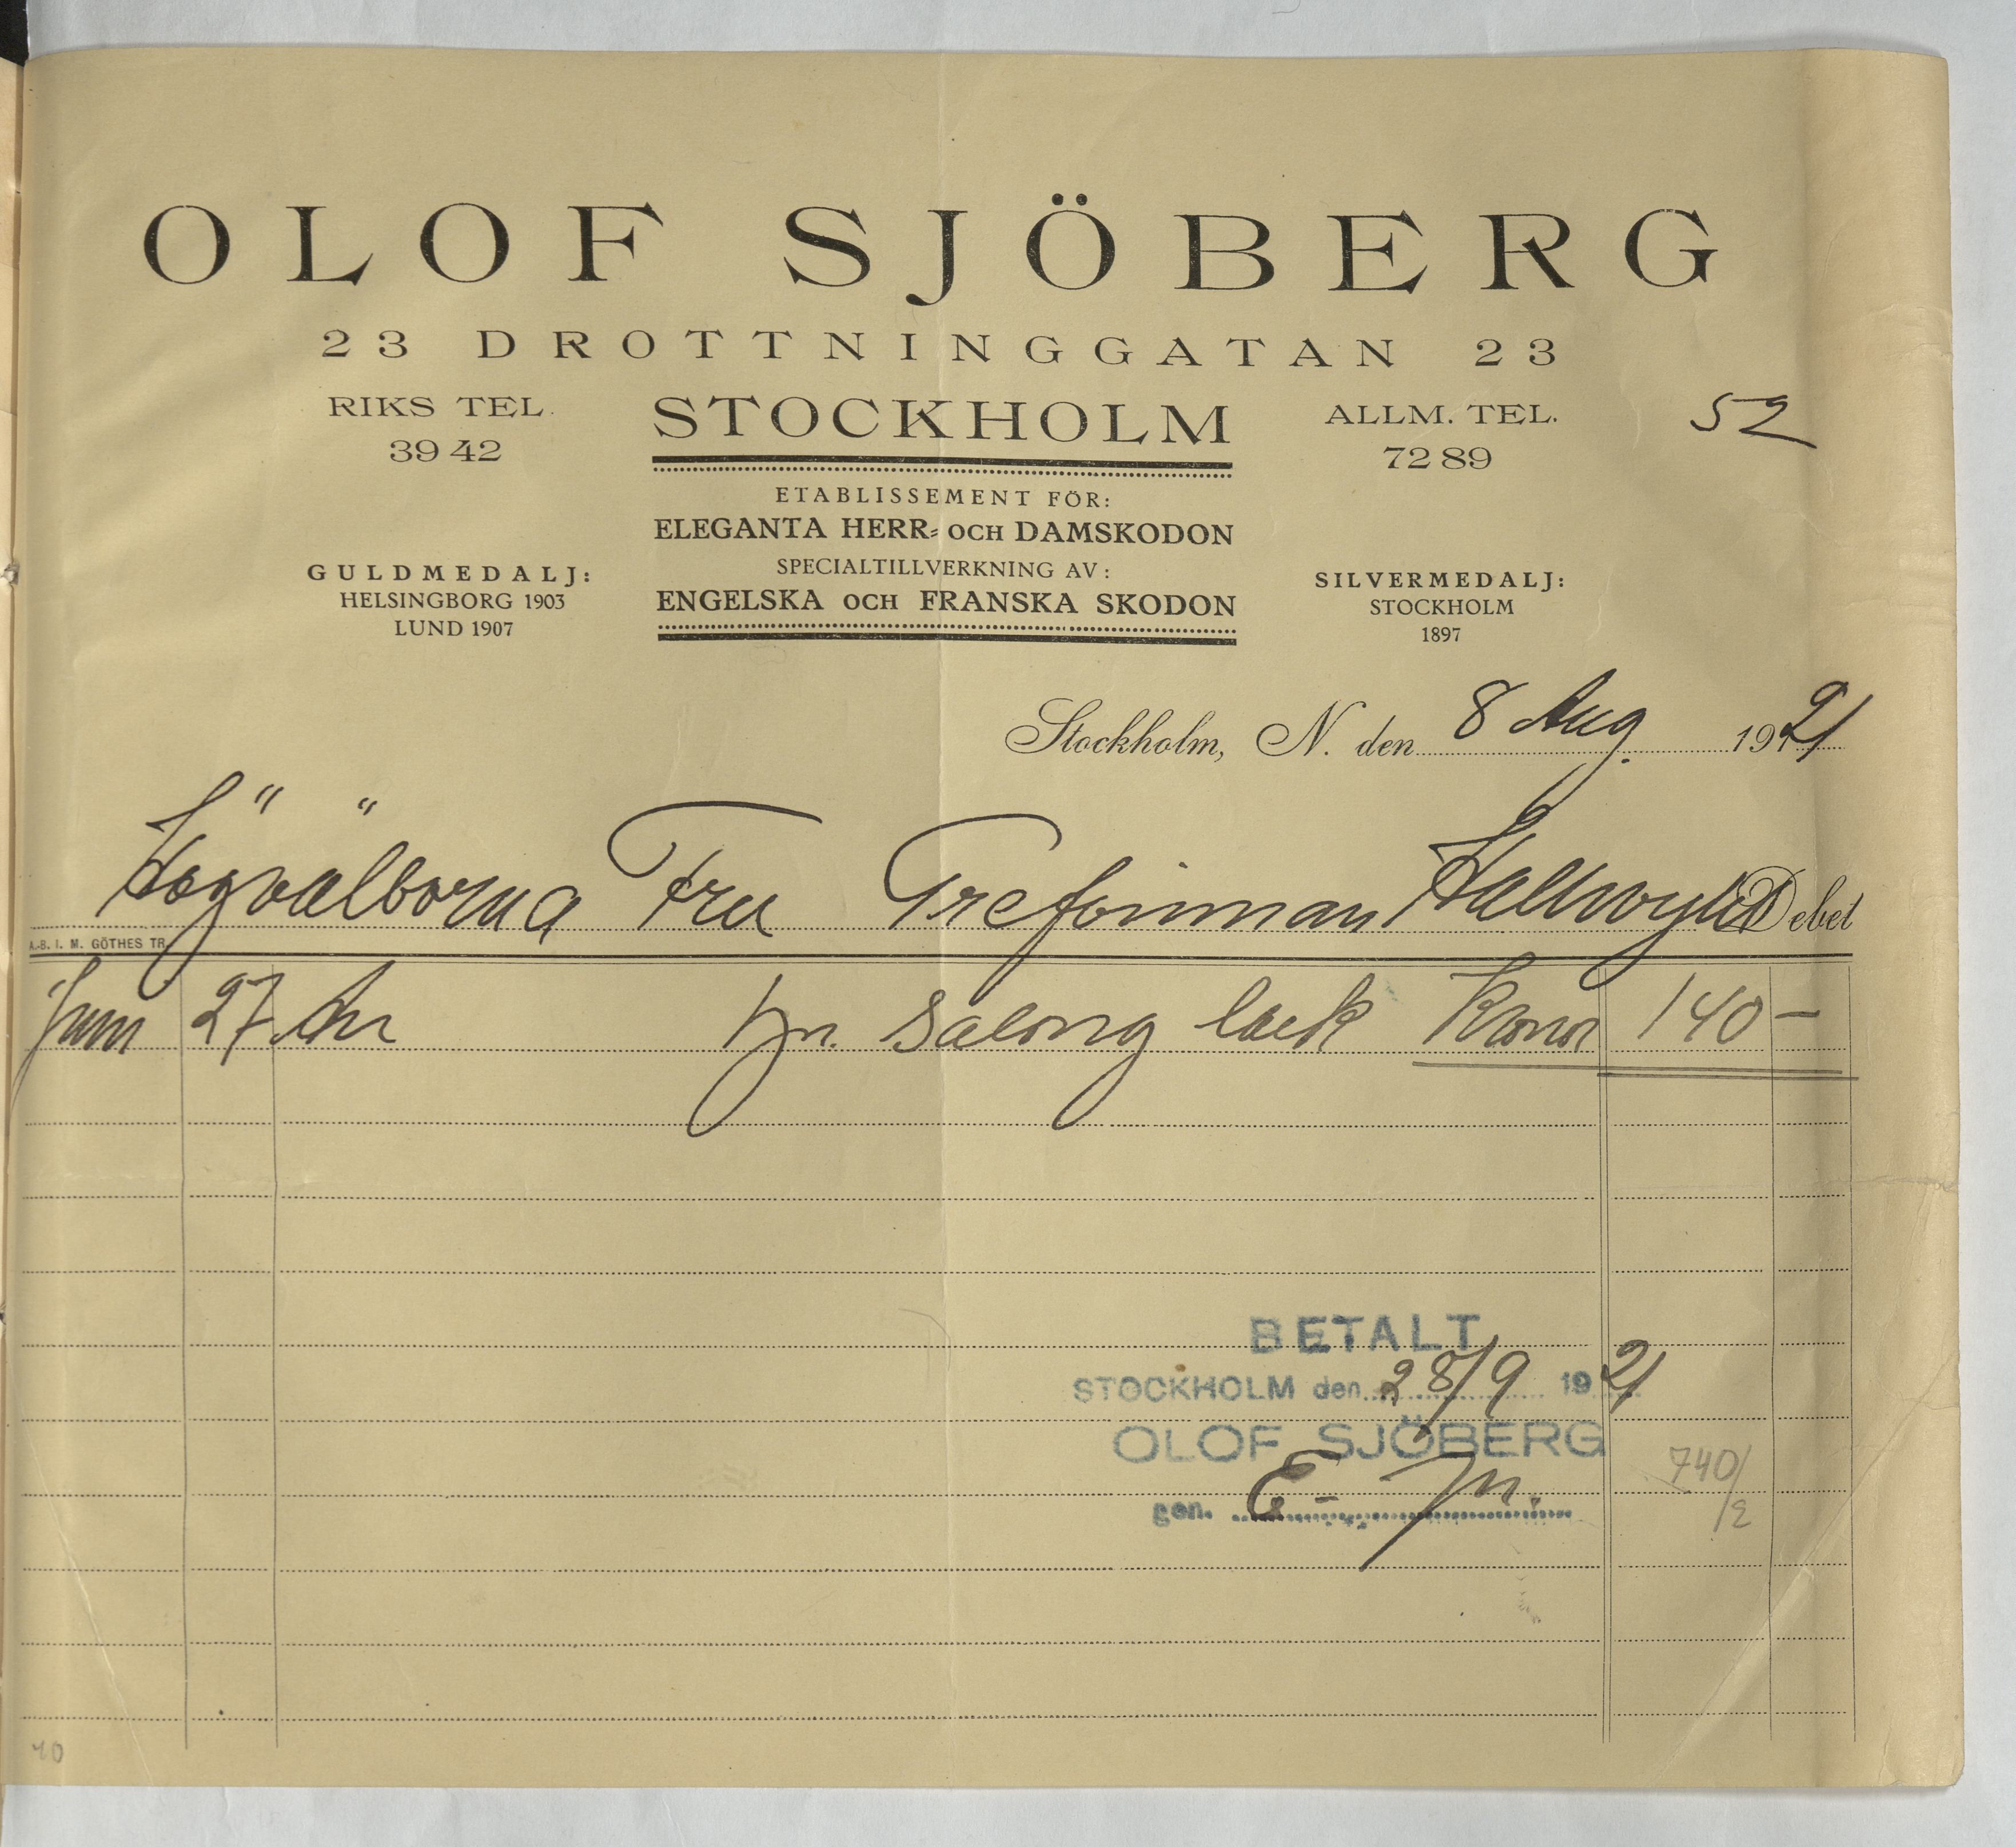 OLOF SJÖBERG
23 DROTTNINGGATAN 23
RIKS TEL. STOCKHOLM ALLM. TEL. 52
39 42 72 89
ETABLISSEMENT FÖR:
ELEGANTA HERR- OCH DAMSKODON
SPECIALTILLVERKNING AV:
ENGELSKA OCH FRANSKA SKODON
GULDMEDALJ:
HELSINGBORG 1903
LUND 1907
SILVERMEDALJ:
STOCKHOLM
1897
Stockholm, N. den 8 Aug. 1921
Högvälborna Fru Grefvinnan Hallwyl Debet
A.-B. I. M. GÖTHES TR.
Juni 27 pr. Salong lack Kronor 140 —
BETALT
STOCKHOLM den 28/9 1921
OLOF SJÖBERG
gen.
740/2
40